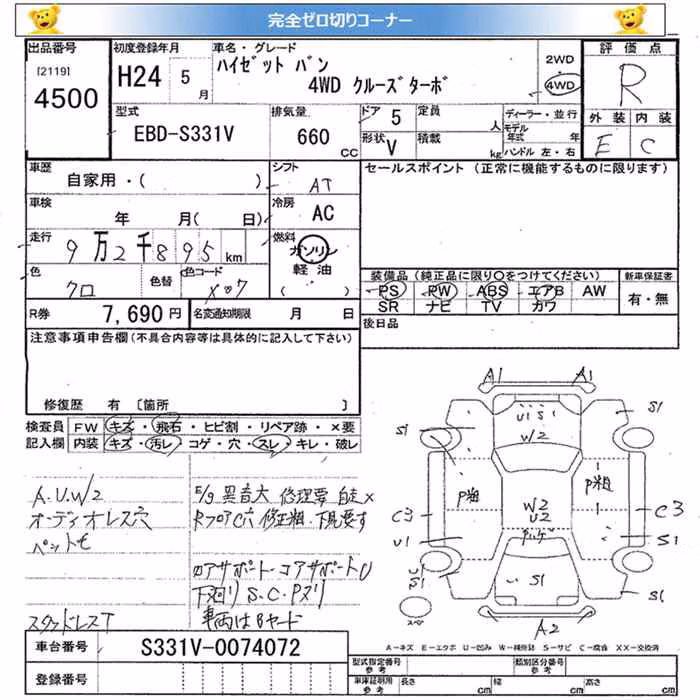 完全ゼロ切りコーナー
出品番号
[2119]
4500
初度登録年月
H24 5月
車名・グレード
ハイゼット バン
4WD クルーズターボ
2WD
4WD
評価点
R
外装 内装
E C
型式
EBD-S331V
排気量
660 CC
ドア 5
形状 V
定員 人
積載 kg
ディーラー・並行
モデル年式 年
ハンドル 左・右
車歴
自家用・( )
シフト
AT
セールスポイント (正常に機能するものに限ります)
車検
年 月( 日)
冷房
AC
走行
9万2千895 km
燃料
ガソリン
軽油
( )
色
クロ
色替
色コード
X07
装備品 (純正品に限り○をつけてください)
PS PW ABS エアB AW
SR ナビ TV カワ
新車保証書
有・無
R券 7,690円
名変通知期限 月 日
後日品
注意事項申告欄(不具合内容等は具体的に記入して下さい)
修復歴 有 [箇所 ]
検査員 FW キズ・飛石・ヒビ割・リペア跡・×要
記入欄 内装 キズ・汚レ・コゲ・穴・スレ・キレ・破レ
A.U.W2
オーディオレス穴
ペット毛
スタッドレスT
E/g異音大 修理要 自走×
RフロアC穴 修正粗・下見要す
ロアサポート・コアサポートU
下廻り S.C.Pヌリ
車両はBヤード
A1
A1
U1 S1
W2
S1
S1
P粗
P粗
W2
U2
C3
C3
U1
S1
S1
S1
S1
A2
スペ
A-キズ E-エクボ U-凹み W-補修跡 S-サビ C-腐食 XX-交換済
車台番号 S331V-0074072
登録番号
型式指定番号 参考
類別区分番号 参考
車庫証明用 参考
長さ cm
幅 cm
高さ cm